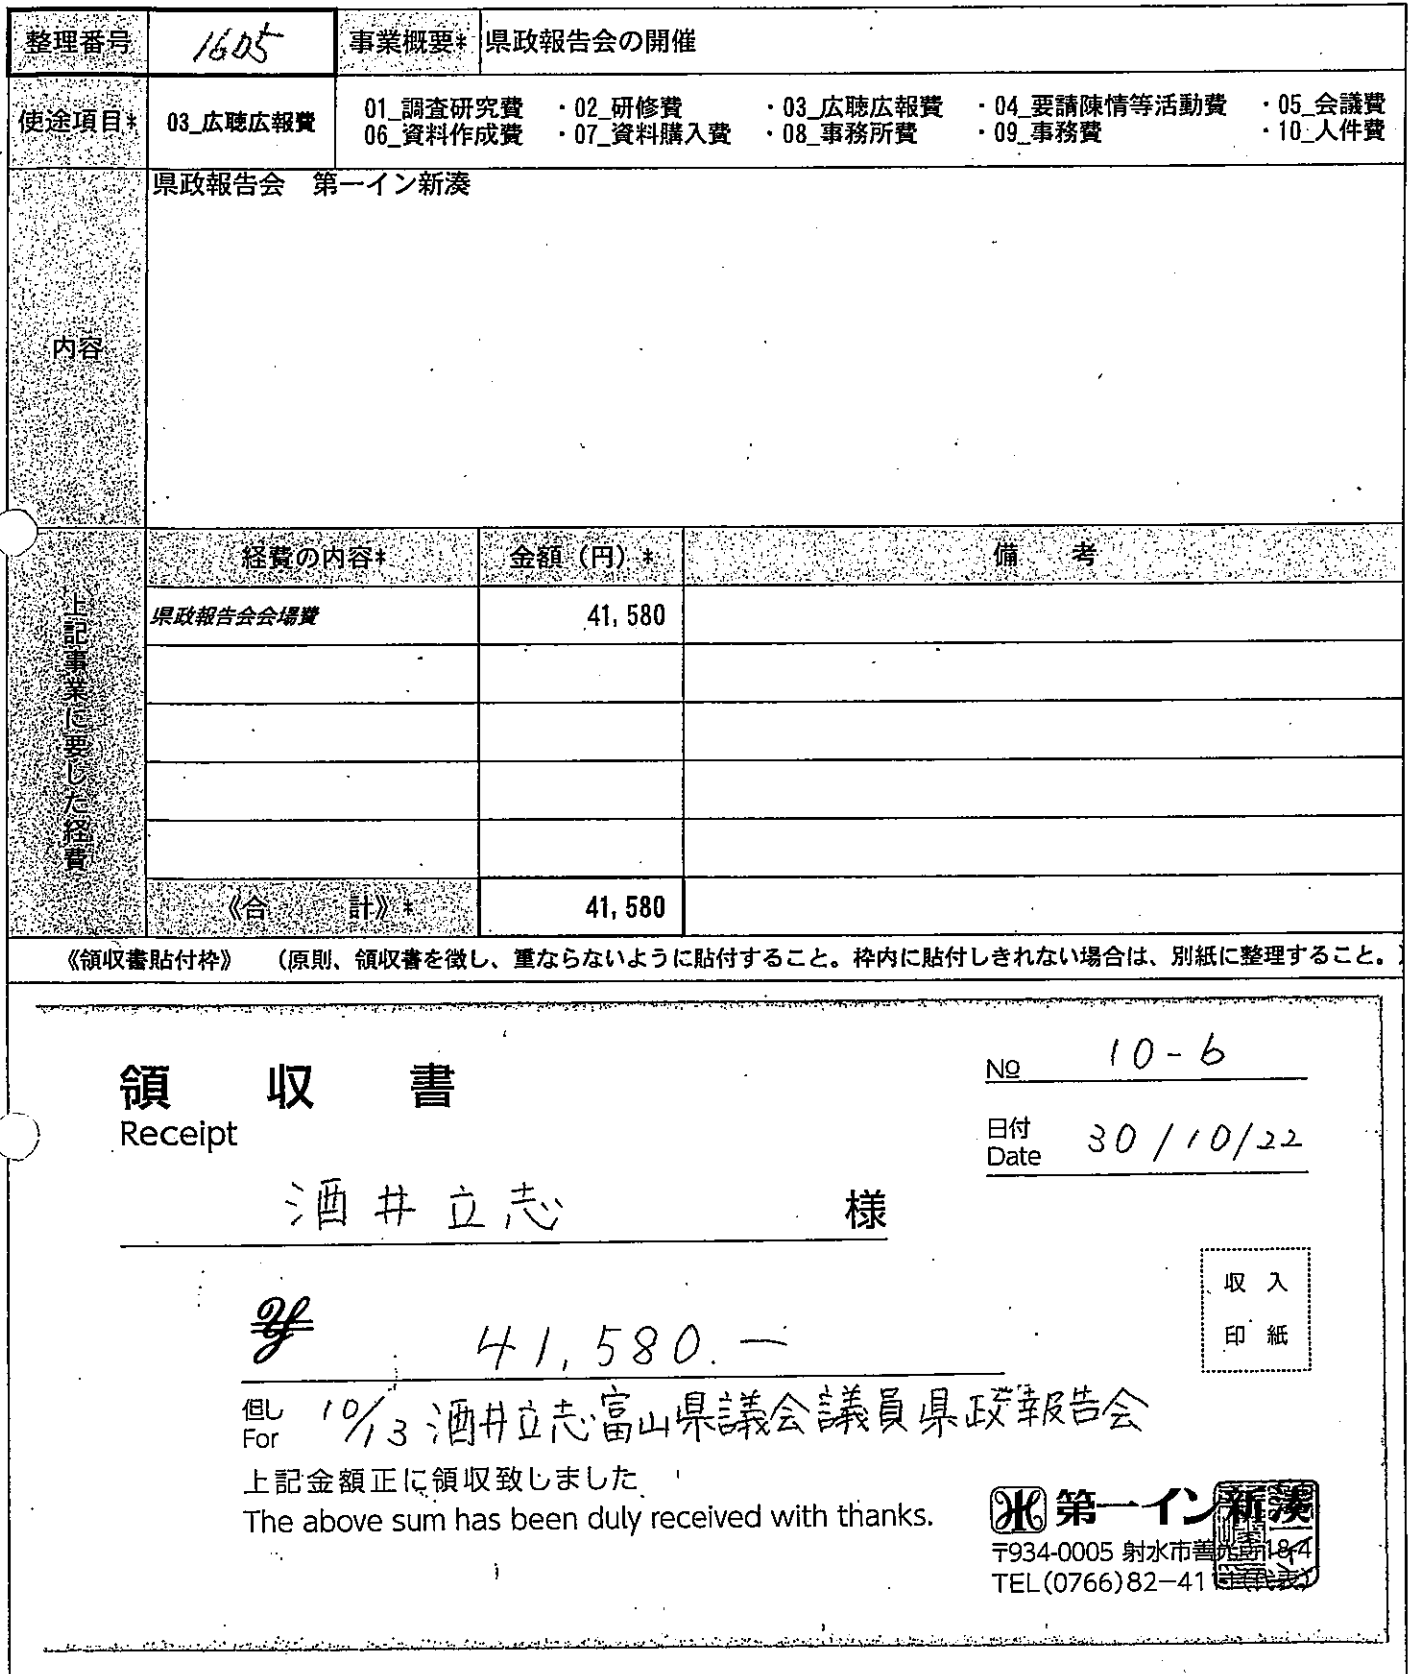 整理番号 1605 事業概要* 県政報告会の開催
使途項目* 03_広聴広報費 01_調査研究費 ・02_研修費 ・03_広聴広報費 ・04_要請陳情等活動費 ・05_会議費
06_資料作成費 ・07_資料購入費 ・08_事務所費 ・09_事務費 ・10_人件費
内容 県政報告会 第一イン新湊
上記事業に要した経費
経費の内容* 金額（円）* 備考
県政報告会会場費 41,580
《合計》* 41,580
《領収書貼付枠》 （原則、領収書を徴し、重ならないように貼付すること。枠内に貼付しきれない場合は、別紙に整理すること。）
領収書
Receipt
No 10-6
日付 Date 30/10/22
酒井立志 様
¥ 41,580.—
収入
印紙
但し For 10/13 酒井立志富山県議会議員県政報告会
上記金額正に領収致しました
The above sum has been duly received with thanks.
第一イン新湊
〒934-0005 射水市善光寺18-4
TEL(0766)82-41